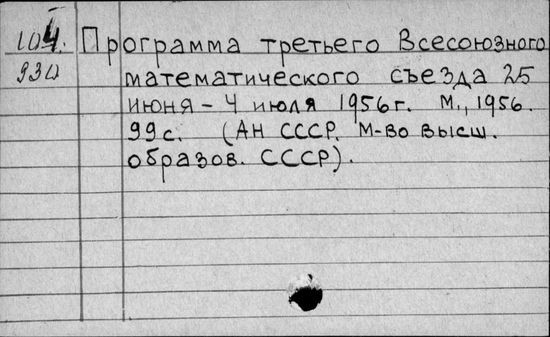 104. Программа третьего Всесоюзного
930 математического съезда 25
июня – 4 июля 1956 г. М., 1956.
99 с. (АН СССР. М-во высш.
образов. СССР).